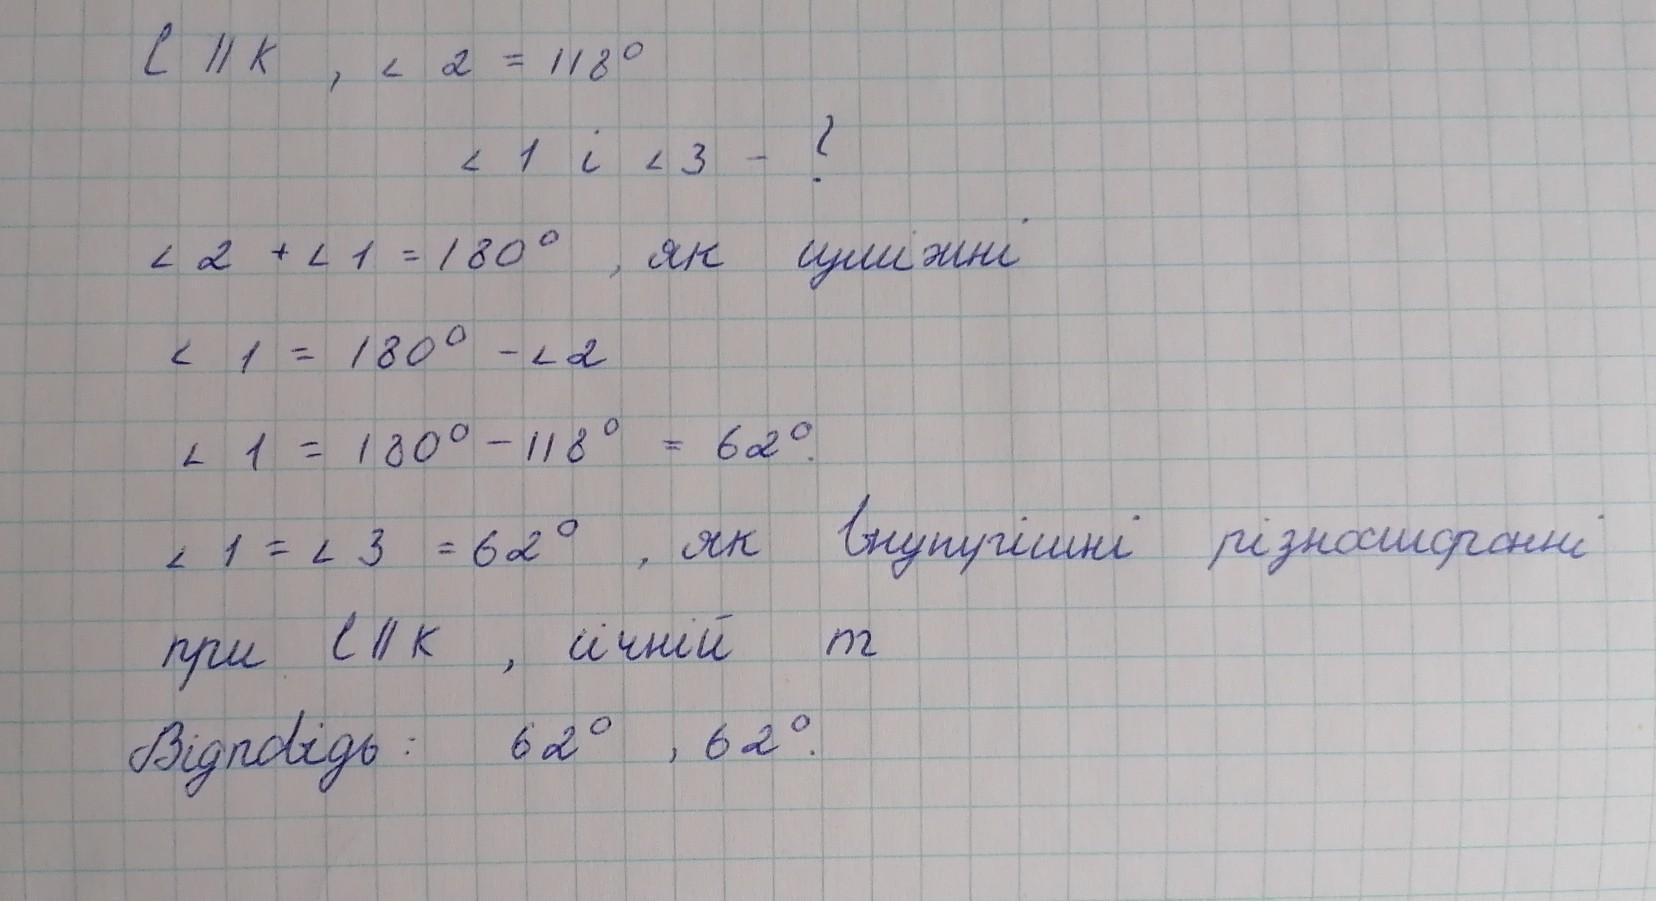 l || k , < 2 = 118°
< 1 і < 3 - ?
< 2 + < 1 = 180° , як суміжні
< 1 = 180° - < 2
< 1 = 180° - 118° = 62°.
< 1 = < 3 = 62° , як внутрішні різносторонні
при l || k , січній m
Відповідь: 62° , 62°.